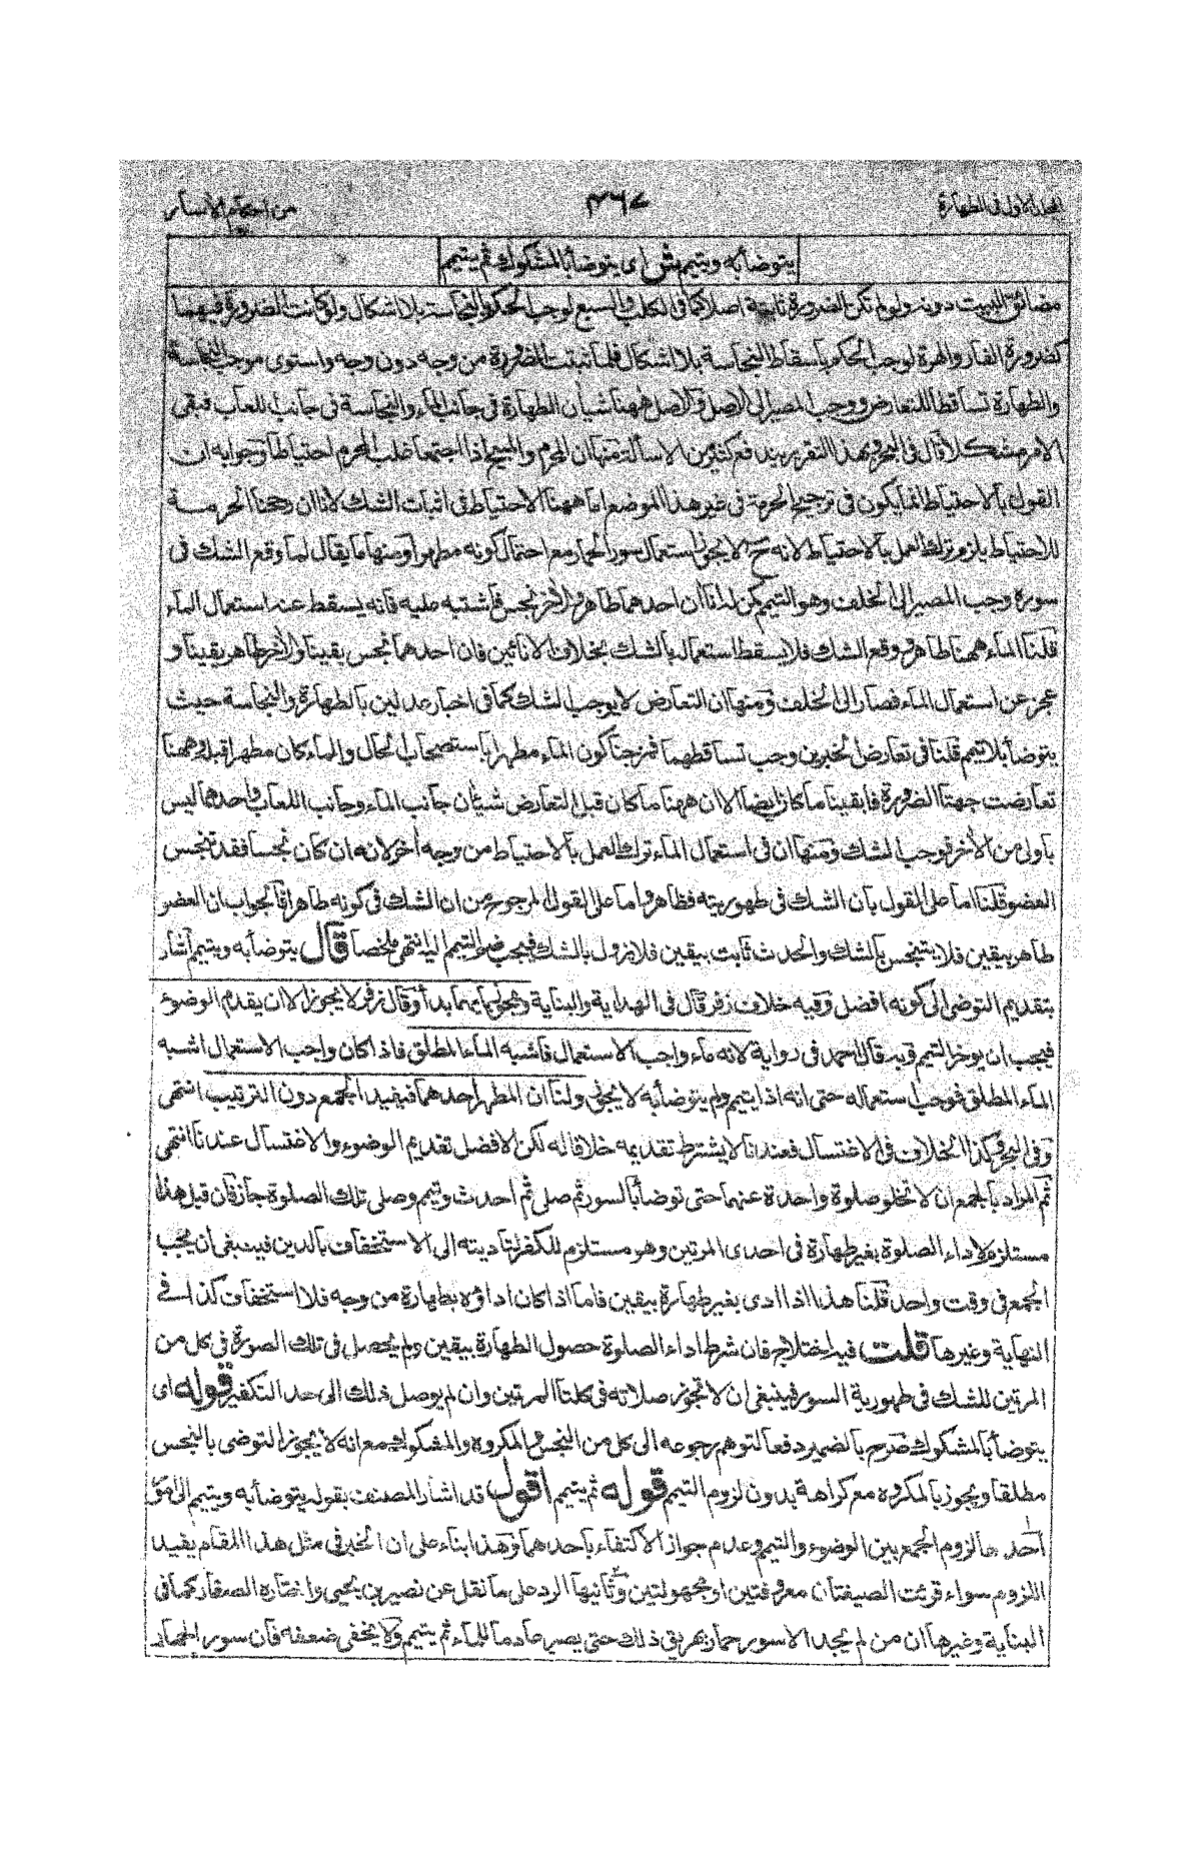 المجلد الاول فى الطهارة ٤٦٧ من احكام الاسآر
يتوضأ به ويتيمم ش اى يتوضأ بالمشكوك ثم يتيمم
مضائق البيت دونه ولو لم تكن الضرورة ثابتة اصلا كما فى الكلب والسبع لوجب الحكم بالنجاسة بلا اشكال ولو كانت الضرورة فيهما
كضرورة الفار والهرة لوجب الحكم باسقاط النجاسة بلا اشكال فلما ثبتت الضرورة من وجه دون وجه واستوى موجب النجاسة
والطهارة تساقطا للتعارض ووجب المصير الى الاصل والاصل ههنا شيأن الطهارة فى جانب الماء والنجاسة فى جانب اللعاب فبقى
الامر مشكلا قال فى البحر وبهذا التقرير يندفع كثير من الاسألة منها ان المحرم والمبيح اذا اجتمعا غلب المحرم احتياطا وجوابه ان
القول بالاحتياط انما يكون فى ترجيح الحرمة فى غير هذا الموضع اما ههنا الاحتياط فى اثبات الشك لانا ان رجحنا الحرمة
للاحتياط يلزم ترك العمل بالاحتياط لانه ح لا يجوز استعمال سور الحمار مع احتمال كونه مطهرا ومنها ما يقال لما وقع الشك فى
سوره وجب المصير الى الخلف وهو التيمم كمن له اناآن احدهما طاهر والآخر نجس فاشتبه عليه فانه يسقط عنه استعمال الماء
قلنا الماء ههنا طاهر ووقع الشك فلا يسقط استعماله بالشك بخلاف الانائين فان احدهما نجس يقينا والآخر طاهر يقينا و
عجز عن استعمال الماء فصار الى الخلف ومنها ان التعارض لا يوجب الشك كما فى اخبار عدلين بالطهارة والنجاسة حيث
يتوضأ بلا تيمم قلنا فى تعارض الخبرين وجب تساقطهما فرجحنا كون الماء مطهرا باستصحاب الحال والماء كان مطهرا قبله وههنا
تعارضت جهتا الضرورة فابقينا ما كان ايضا الا ان ههنا ما كان قبل التعارض شيئان جانب الماء وجانب اللعاب واحدهما ليس
بأولى من الآخر فوجب الشك ومنها ان فى استعمال الماء ترك العمل بالاحتياط من وجه آخر لانه ان كان نجسا فقد تنجس
العضو قلنا اما على القول بان الشك فى طهوريته فظاهر واما على القول المرجوح من ان الشك فى كونه طاهرا فالجواب ان العضو
طاهر بيقين فلا يتنجس بالشك والحدث ثابت بيقين فلا يزول بالشك فيجب ضم التيمم اليه انتهى ملخصا قال يتوضأ به ويتيمم اشار
بتقديم التوضى الى كونه افضل وفيه خلاف زفر قال فى الهداية والبناية ويجوز بايهما بدأ وقال زفر لا يجوز الا ان يقدم الوضوء
فيجب ان يوخر التيمم وبه قال احمد فى رواية لانه ماء واجب الاستعمال فاشبه الماء المطلق فاذا كان واجب الاستعمال اشبه
الماء المطلق فوجب استعماله حتى انه اذا يتيمم ولم يتوضأ به لا يجوز ولنا ان المطهر احدهما فيفيد الجمع دون الترتيب انتهى
وفى البحر وكذا الخلاف فى الاغتسال فعندنا لا يشترط تقديمه خلافا له لكن الافضل تقديم الوضوء والاغتسال عندنا انتهى
ثم المراد بالجمع ان لا تخلو صلوة واحدة عنهما حتى توضأ بالسور ثم صلى ثم احدث وتيمم وصلى تلك الصلوة جاز فان قيل هذا
مستلزم لاداء الصلوة بغير طهارة فى احدى المرتين وهو مستلزم للكفر لتأديته الى الاستخفاف بالدين فينبغى ان يجب
الجمع فى وقت واحد قلنا هذا اذا ادى بغير طهارة بيقين فاما اذا كان اداؤه بطهارة من وجه فلا استخفاف كذا فى
النهاية وغيرها قلت فيه اختلاج فان شرط اداء الصلوة حصول الطهارة بيقين ولم يحصل فى تلك الصورة فى كل من
المرتين للشك فى طهورية السور فينبغى ان لا تجوز صلاته فى كلتا المرتين وان لم يوصل ذلك الى حد التكفير قوله اى
يتوضأ بالمشكوك صرح بالضمير دفعا لتوهم رجوعه الى كل من النجس والمكروه والمشكوك مع انه لا يجوز التوضى بالنجس
مطلقا ويجوز بالمكروه مع كراهة بدون لزوم التيمم قوله ثم يتيمم اقول قد اشار المصنف بقوله يتوضأ به ويتيمم الى
احدها لزوم الجمع بين الوضوء والتيمم وعدم جواز الاكتفاء باحدهما وهذا بناء على ان الخبر فى مثل هذا المقام يفيد
اللزوم سواء قرئت الصيغتان معروفتين او مجهولتين وثانيها الرد على ما نقل عن نصير بن يحيى واختاره الصفار كما فى
البناية وغيرها ان من لم يجد الا سور حمار يهريق ذلك حتى يصير عادما للماء ثم يتيمم ولا يخفى ضعفه فان سور الحمار